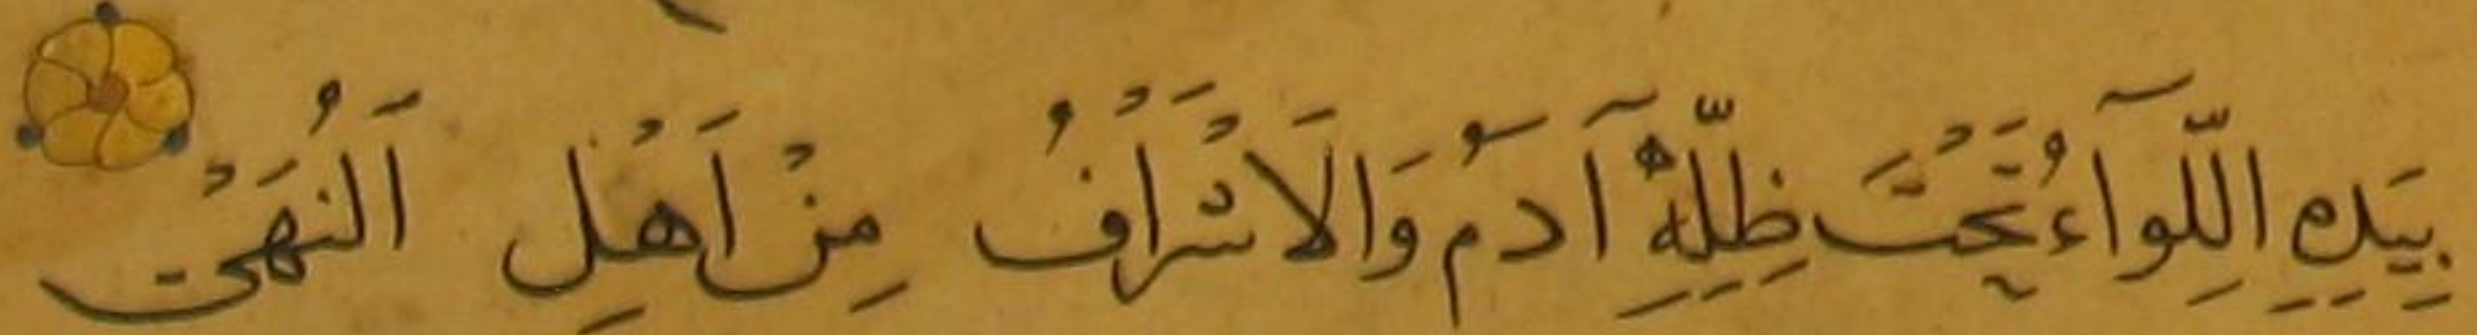 بِيَدِهِ اللِّوَآءُ تَحْتَ ظِلِّهِ آدَمُ وَالَاشْرَافُ مِنْ اَهْلِ اَلنُهَىْ